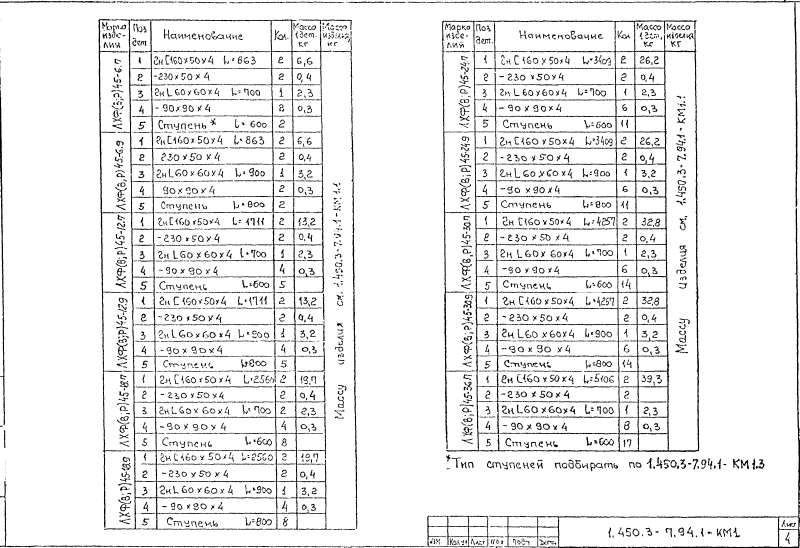 Марка изде- лия Поз дет. Наименование Кол. Масса 1 дет. кг Масса изделия, кг
ЛХФ(В;Р)45-6.7
1 гн[160×50×4 L=863 2 6,6
2 -230×50×4 2 0,4
3 гнL60×60×4 L=700 1 2,3
4 -90×90×4 2 0,3
5 Ступень* L=600 2
ЛХФ(В,Р)45-6.9
1 гн[160×50×4 L=863 2 6,6
2 230×50×4 2 0,4
3 гнL60×60×4 L=900 1 3,2
4 90×90×4 2 0,3
5 Ступень L=800 2
ЛХФ(В,Р)45-12.7
1 гн[160×50×4 L=1711 2 13,2
2 -230×50×4 2 0,4
3 гнL60×60×4 L=700 1 2,3
4 -90×90×4 4 0,3
5 Ступень L=600 5
ЛХФ(В;Р)45-12.9
1 гн[160×50×4 L=1711 2 13,2
2 -230×50×4 2 0,4
3 гнL60×60×4 L=900 1 3,2
4 -90×90×4 4 0,3
5 Ступень L=800 5
ЛХФ(В;Р)45-18.7
1 гн[160×50×4 L=2560 2 19,7
2 -230×50×4 2 0,4
3 гнL60×60×4 L=700 2 2,3
4 -90×90×4 4 0,3
5 Ступень L=600 8
ЛХФ(В;Р)45-18.9
1 гн[160×50×4 L=2560 2 19,7
2 -230×50×4 2 0,4
3 гнL60×60×4 L=900 1 3,2
4 -90×90×4 4 0,3
5 Ступень L=800 8
Массу изделия см. 1.450.3-7.94.1-КМ1.1
Марка изде- лия Поз дет. Наименование Кол Масса 1 дет, кг Масса изделия, кг
ЛХФ(В;Р)45-24.7
1 гн[160×50×4 L=3409 2 26,2
2 -230×50×4 2 0,4
3 гнL60×60×4 L=700 1 2,3
4 -90×90×4 6 0,3
5 Ступень L=600 11
ЛХФ(В;Р)45-24.9
1 гн[160×50×4 L=3409 2 26,2
2 -230×50×4 2 0,4
3 гнL60×60×4 L=900 1 3,2
4 -90×90×4 6 0,3
5 Ступень L=800 11
ЛХФ(В,Р)45-30.7
1 гн[160×50×4 L=4257 2 32,8
2 -230×50×4 2 0,4
3 гнL60×60×4 L=700 1 2,3
4 -90×90×4 6 0,3
5 Ступень L=600 14
ЛХФ(В;Р)45-30.9
1 гн[160×50×4 L=4257 2 32,8
2 -230×50×4 2 0,4
3 гнL60×60×4 L=900 1 3,2
4 -90×90×4 6 0,3
5 Ступень L=800 14
ЛХФ(В;Р)45-36.7
1 гн[160×50×4 L=5106 2 39,3
2 -230×50×4 2
3 гнL60×60×4 L=700 1 2,3
4 -90×90×4 8 0,3
5 Ступень L=600 17
Массу изделия см. 1.450.3-7.94.1-КМ1.1
*Тип ступеней подбирать по 1.450.3-7.94.1-КМ1.3
Изм Кол.уч Лист №д Подп Дата
1.450.3-7.94.1-КМ1
Лист
4